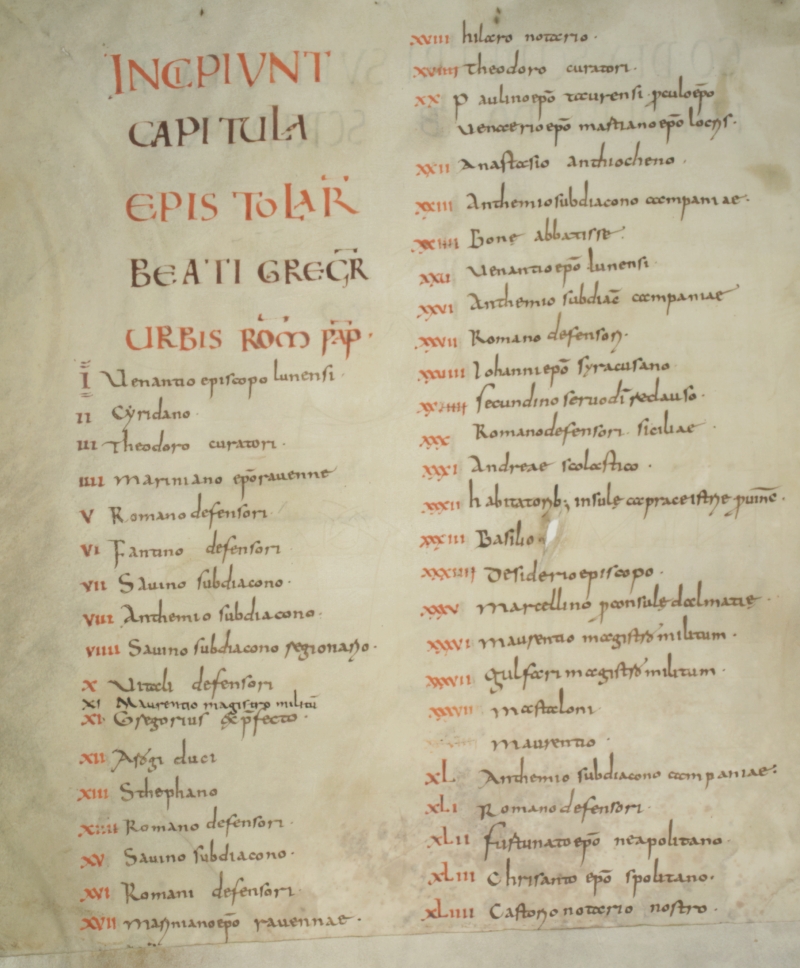 INCIPIUNT
CAPITULA
EPISTOLAR̄
BEATI GREGR̄
URBIS ROM̄ PAP̄·
I Uenantio episcopo lunensi
II Cyridano·
III Theodoro curatori·
IIII Mariniano ep̄o rauenne
V Romano defensori
VI Fantino defensori
VII Sauino subdiacono·
VIII Anthemio subdiacono·
VIIII Sauino subdiacono regionario·
X Uitali defensori
XI Maurentio magistro militū
XI· Gregorius p̄fecto·
XII Arogi duci
XIII Sthephano
XIIII Romano defensori·
XV Sauino subdiacono·
XVI Romani defensori·
XVII Mariniano ep̄o rauennae·
XVIII hilaro notario·
XVIIII Theodoro curatori·
XX Paulino ep̄o taurensi proculo ep̄o
uenaerio ep̄o mastiano ep̄o locris·
XXII Anastasio anthiocheno·
XXIII Anthemio subdiacono campaniae·
XXIIII Bone abbatisse·
XXU Uenantio ep̄o lunensi
XXVI Anthemio subdiac̄ campaniae
XXVII Romano defensori·
XXVIII Iohanni ep̄o syracusano
XXVIIII secundino seruo dī recluso·
XXX Romano defensori siciliae·
XXXI Andreae scolastico·
XXXII habitatorib; insulę capraeistrie prouinc̄·
XXXIII Basilio·
XXXIIII Desiderio episcopo·
XXXV Marcellino proconsule dalmatię·
XXXVI Maurentio magistro militum·
XXXVII Gulfari magistro militum·
XXXVII Mastaloni
Maurentio·
XL Anthemio subdiacono campaniae·
XLI Romano defensori·
XLII fortunato ep̄o neapolitano·
XLIII Chrisanto ep̄o spolitano·
XLIIII Castorio notario nostro·